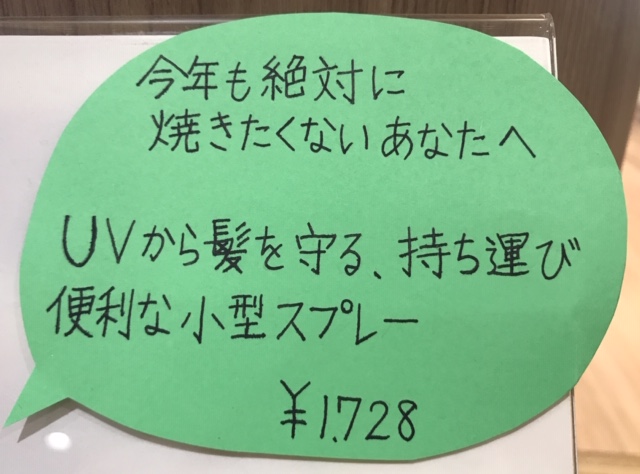 今年も絶対に
焼きたくないあなたへ
UVから髪を守る、持ち運び
便利な小型スプレー
¥1.728